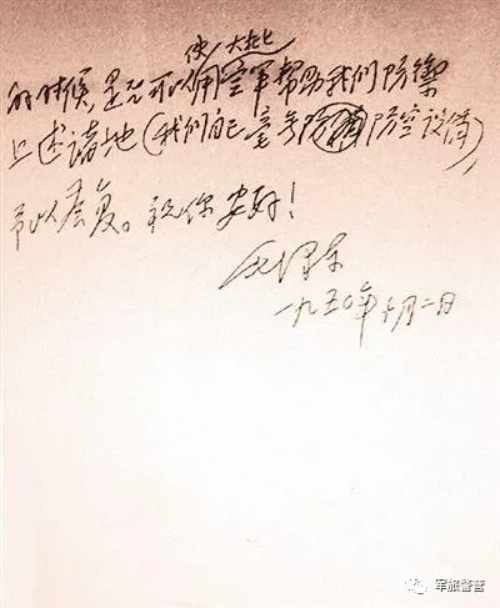 使 大批
的时候,是否可以用空军帮助我们防禦
上述诸地(我们自己毫无防空设备),
予以答复。祝你安好!
毛泽东
一九五〇年十月二日
军旅警营